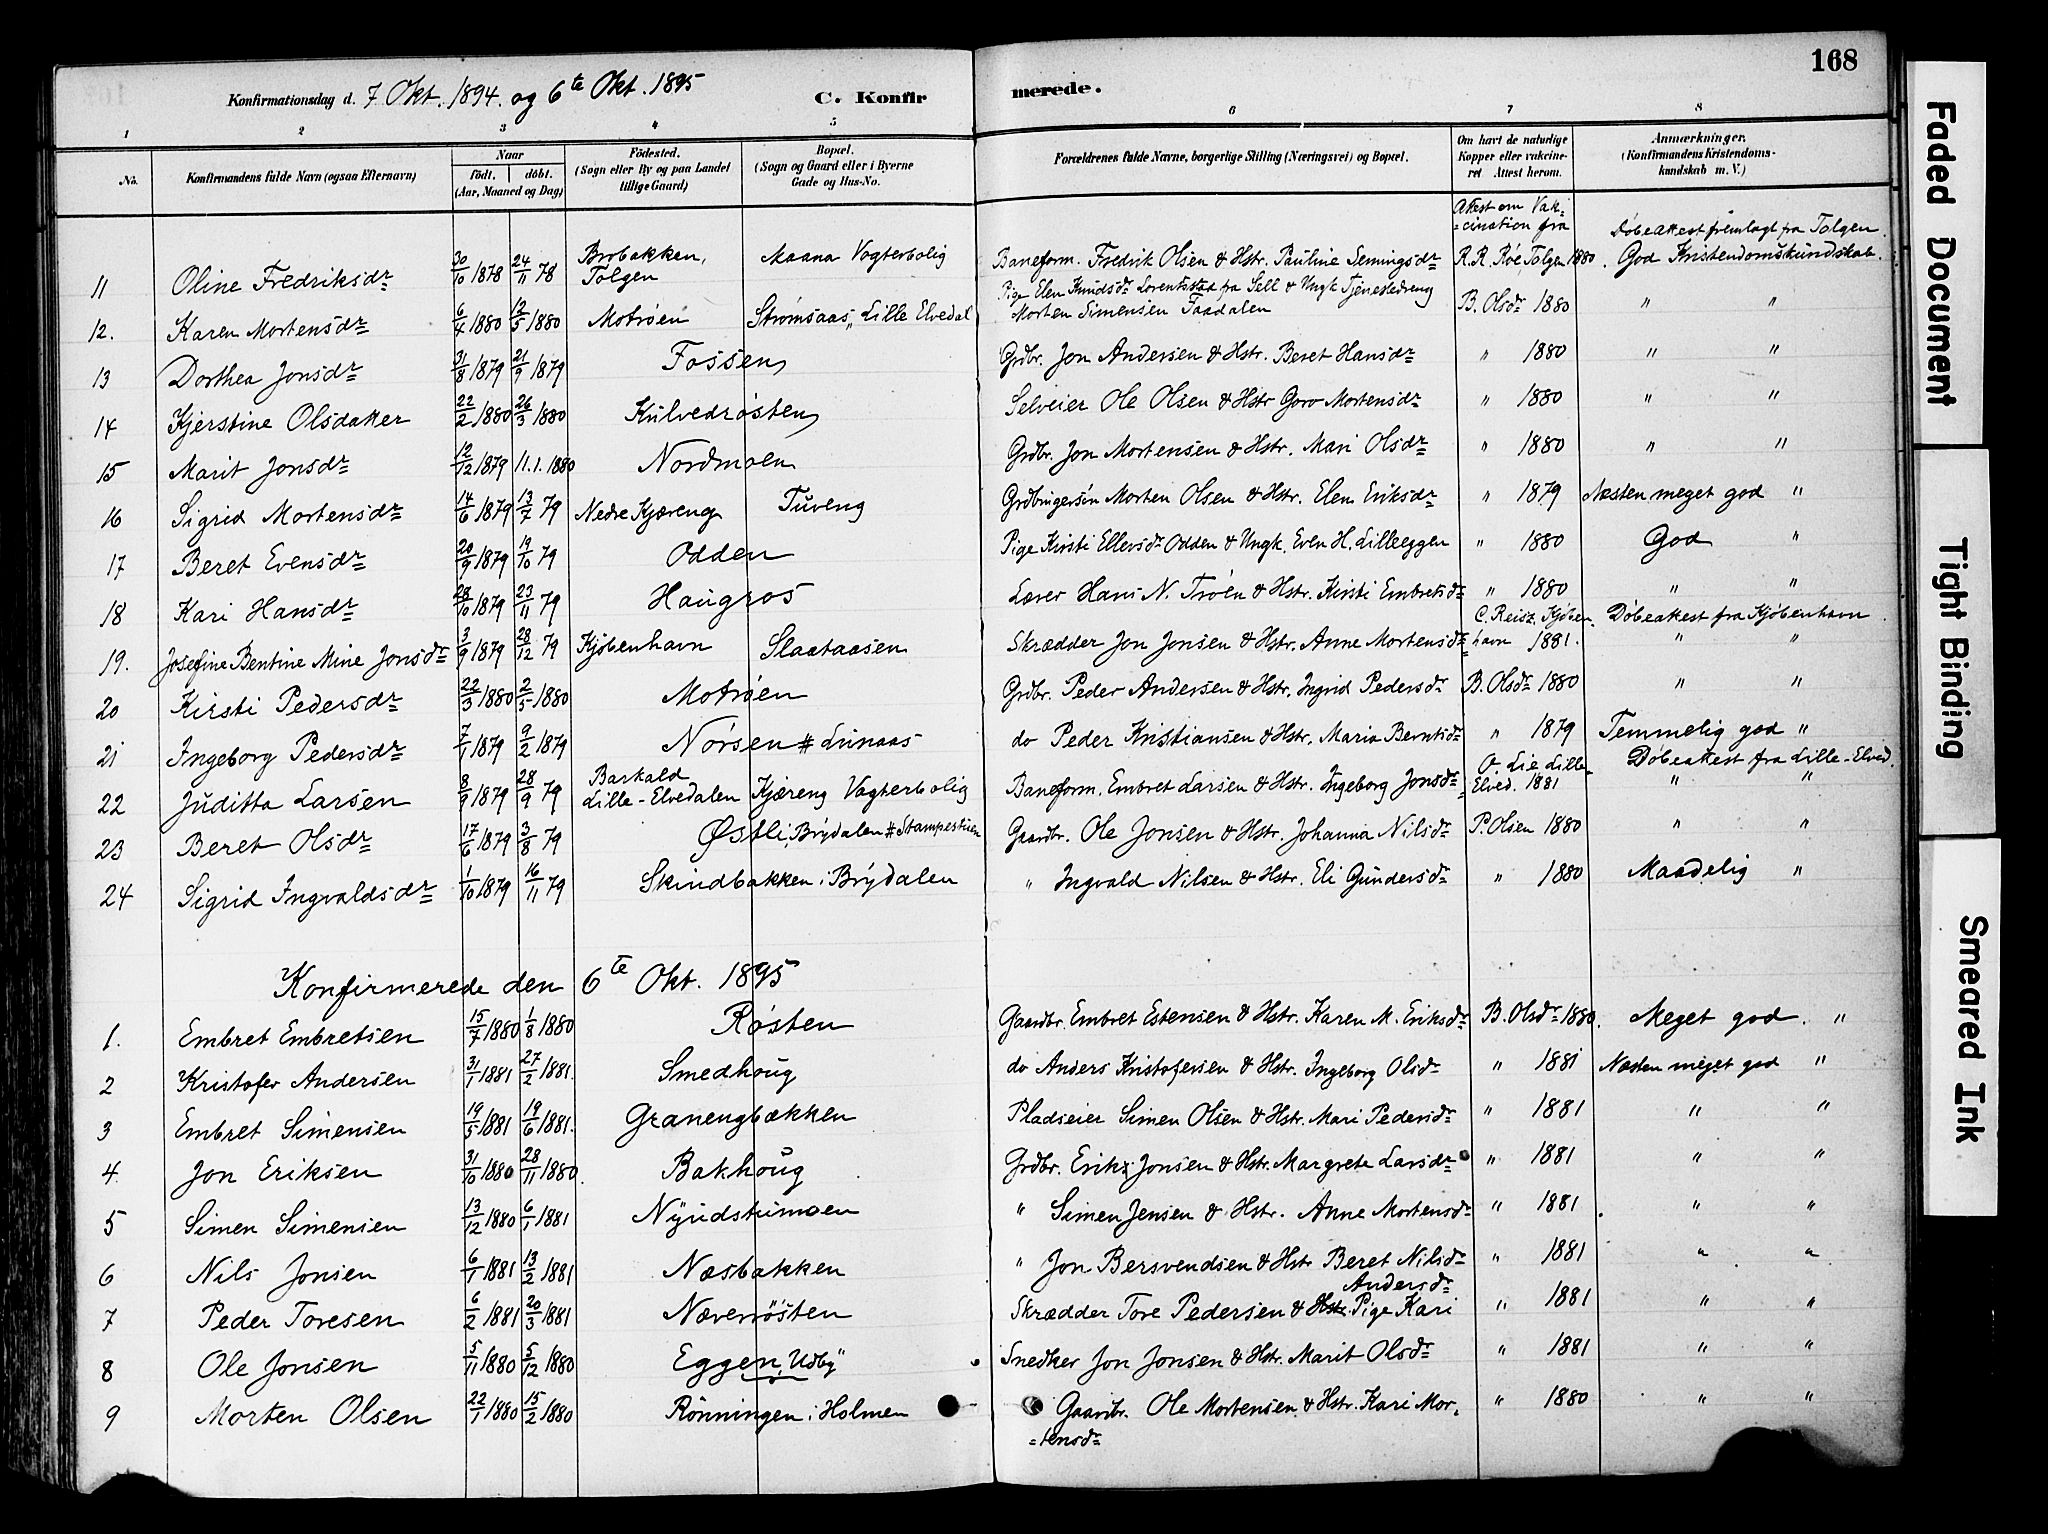 168
Konfirmationsdag d. 7 Okt. 1894. og 6te Okt. 1895 C. Konfirmerede.
1 2 3 4 5 6 7 8
No. Konfirmandens fulde Navn (ogsaa Efternavn) Naar født. døbt. (Aar, Maaned og Dag) Fødested. (Sogn eller By og paa Landet tillige Gaard) Bopæl. (Sogn og Gaard eller i Byerne Gade og Hus-No. Forældrenes fulde Navne, borgerlige Stilling (Næringsvei) og Bopæl. Om havt de naturlige Kopper eller vakcineret Attest herom. Anmærkninger. (Konfirmandens Kristendomskundskab m. V.)
Attest om Vak=
=cination fra
Døbeattest fremlagt fra Tolgen.
11 Oline Fredriksdr 30/10 1878 24/11 78 Brobakken, Tolgen Maana Vogterbolig Baneform. Fredrik Olsen & Hstr. Pauline Semingsdr R. R. Røe, Tolgen 1880. God Kristendomskundskab.
12. Karen Mortensdr 6/4 1880 12/5 1880 Motrøen Strømsaas, Lille Elvedal Pige Elen Knudsdr Lorentsstad fra Sell & Ungk Tjenestedreng Morten Simensen Faadalen B. Olsdr 1880 " "
13 Dorthea Jonsdr 31/8 1879 21/9 1879 Fossen Grdbr. Jon Andersen & Hstr. Beret Hansdr " 1880 " "
14 Kjerstine Olsdatter 22/2 1880 26/3 1880 Kulvedrøsten Selveier Ole Olsen & Hstr Goro Mortensdr " 1880 " "
15 Marit Jonsdr 12/12 1879 11.1.1880 Nordmoen Grdbr. Jon Mortensen & Hstr. Mari Olsdr " 1880 " "
16 Sigrid Mortensdr 14/6 1879 13/7 79 Nedre Kjæreng Tuveng Grdbrugersøn Morten Olsen & Hstr. Elen Eriksdr " 1879 Næsten meget god "
17 Beret Evensdr 20/9 1879 19/10 79 Odden Pige Kirsti Ellersdr Odden & Ungk. Even H. Lilleeggen " 1880 God "
18 Kari Hansdr 28/10 1879 23/11 79 Haugros Lærer Hans N. Trøen & Hstr. Kirsti Embretsdr " 1880 " "
19. Josefine Bentine Mine Jonsdr 3/9 1879 28/12 79 Kjøbenhavn Slaataasen Skrædder Jon Jonsen & Hstr. Anne Mortensdr C. Reisz, Kjøbenhavn 1881. Døbeattest fra Kjøbenhavn. " "
20 Kirsti Pedersdr 22/3 1880 2/5 1880 Motrøen Grdbr. Peder Andersen & Hstr. Ingrid Pedersdr B. Olsdr 1880 " "
21 Ingeborg Pedersdr 7/1 1879 9/2 1879 Norsen # Lunaas do Peder Kristiansen & Hstr. Maria Berntsdr " 1879 Temmelig god "
22 Juditta Larsen 8/9 1879 28/9 79 Barkald Lille-Elvedalen Kjæreng Vogterbolig Baneform. Embret Larsen & Hstr. Ingeborg Jonsdr O Lie Lille Elved. 1881 Døbeattest fra Lille-Elved. " "
23 Beret Olsdr 17/6 1879 3/8 79 Østli, Brydalen # Stampestuen Gaardbr. Ole Jonsen & Hstr. Johanna Nilsdr P. Olsen 1880 " "
24 Sigrid Ingvaldsdr 1/10 1879 16/11 79 Skindbakken i Brydalen " Ingvald Nilsen & Hstr. Eli Gundersdr " 1880 Maadelig "
Konfirmerede den 6te Okt. 1895
1. Embret Embretsen 15/7 1880 1/8 1880 Røsten Gaardbr. Embret Estensen & Hstr. Karen M. Eriksdr B. Olsdr 1880. Meget god. "
2 Kristofer Andersen 31/1 1881 27/2 1881. Smedhoug do Anders Kristofersen & Hstr. Ingeborg Olsdr " 1881 Næsten meget god "
3 Embret Simensen 19/5 1881 19/6 1881. Granengbækken Pladseier Simen Olsen & Hstr. Mari Pedersdr " 1881 " "
4. Jon Eriksen 31/10 1880 28/11 1880. Bakhoug Grdbr. Erik Jonsen & Hstr. Margrete Larsdr " 1881 " "
5 Simen Simensen 13/12 1880 6/1 1881 Nyudstumoen " Simen Jensen & Hstr. Anne Mortensdr " 1881 " "
6 Nils Jonsen 6/1 1881 13/2 1881 Næsbakken " Jon Bersvendsen & Hstr Beret Nilsdr " 1881 " "
7 Peder Toresen 6/2 1881 20/3 1881 Næverrøsten Skrædder Tore Pedersen & Hstr. Pige Kari Andersdr " 1881 " "
8 Ole Jonsen 5/11 1880 5/12 1880 Eggen, Udby Snedker Jon Jonsen & Hstr. Marit Olsdr " 1881 " "
9 Morten Olsen 22/1 1880 15/2 1880 Rønningen i Holmen Gaardbr. Ole Mortensen & Hstr. Kari Mor=
=tensdr " 1880 " "
Faded Document
Tight Binding
Smeared Ink